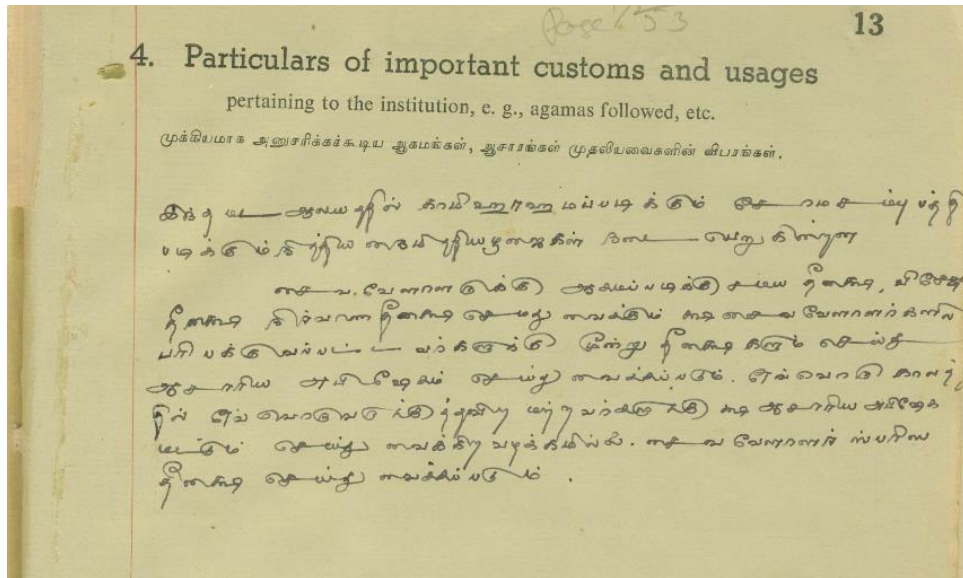 Page 1/53
13
4. Particulars of important customs and usages
pertaining to the institution, e. g., agamas followed, etc.
முக்கியமாக அனுசரிக்கக்கூடிய ஆகமங்கள், ஆசாரங்கள் முதலியவைகளின் விபரங்கள்.
இந்த மட ஆலயத்தில் படிக்கும்
படிக்கும் நித்திய நைமித்திய பூஜைகள் நடைபெறுகின்றன
சைவ வேளாளருக்கு ஆகமப்படிக்கு சமய தீக்ஷை, விசேஷ
தீக்ஷை நிர்வாண தீக்ஷை செய்து வைக்கும் சைவ வேளாளர்களில்
பரிபக்குவப்பட்டவர்களுக்கு மூன்று தீக்ஷைகளும் செய்து
ஆசாரிய அபிஷேகம் செய்து வைக்கப்படும். ஒவ்வொரு காலத்
தில் ஒவ்வொருவருக்கு த்தவிர மற்றவர்களுக்கு ஆசாரிய அபிஷேக
மட்டும் செய்து வைக்கிற வழக்கமில்லை. சைவ வேளாளர் ஸ்பரிஸ
தீக்ஷை செய்து வைக்கப்படும்.